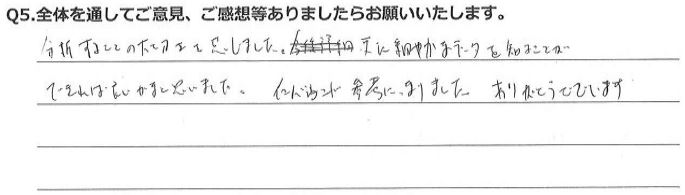 Q5.全体を通してご意見、ご感想等ありましたらお願いいたします。
分析することの大切さを感じました。更に細やかなデータを知ることが
できれば良いかなと思いました。インバウンド参考になりました ありがとうございます